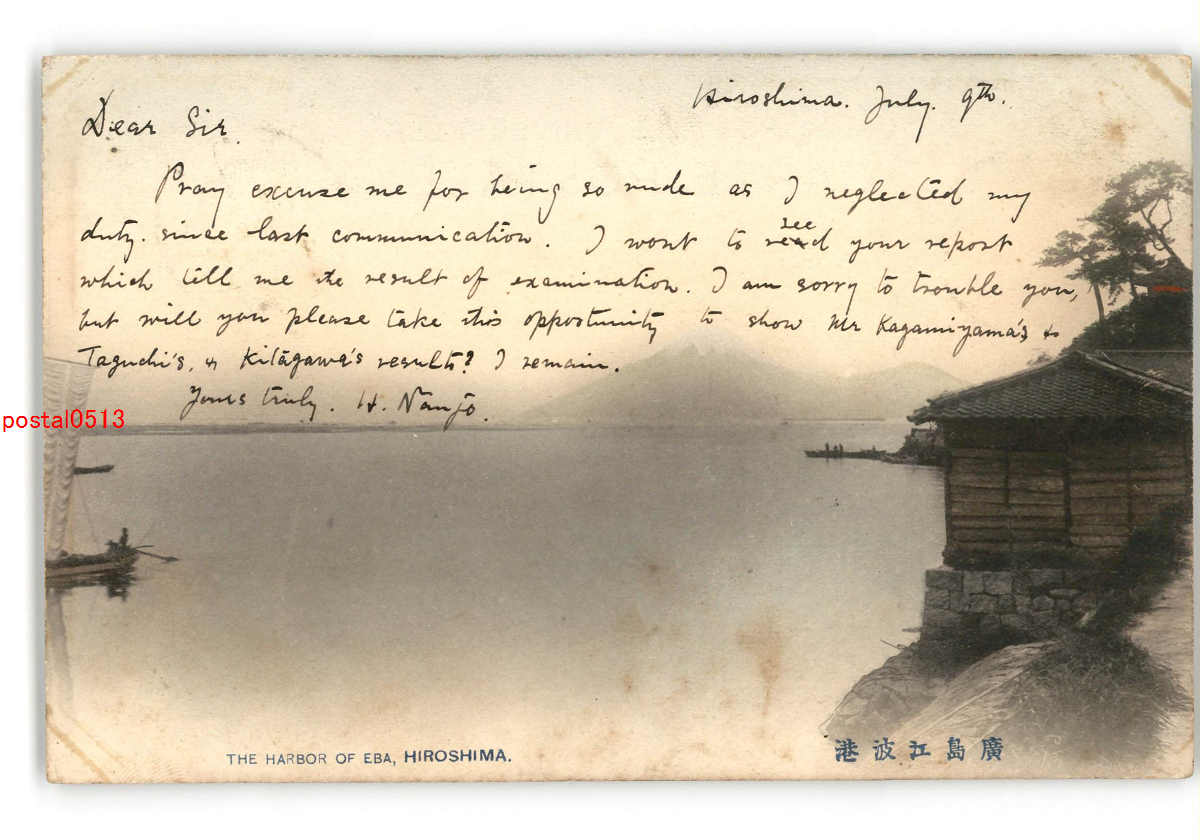 Hiroshima. July. 9th.
Dear Sir.
Pray excuse me for being so rude as I neglected my
duty. since last communication. I want to see read your report
which till me the result of examination. I am sorry to trouble you,
but will you please take this opportunity to show Mr Kagamiyama's &
Taguchi's, & Kitagawa's result? I remain.
Yours truly. H. Nanjo.
postal0513
THE HARBOR OF EBA, HIROSHIMA.
港波江島廣